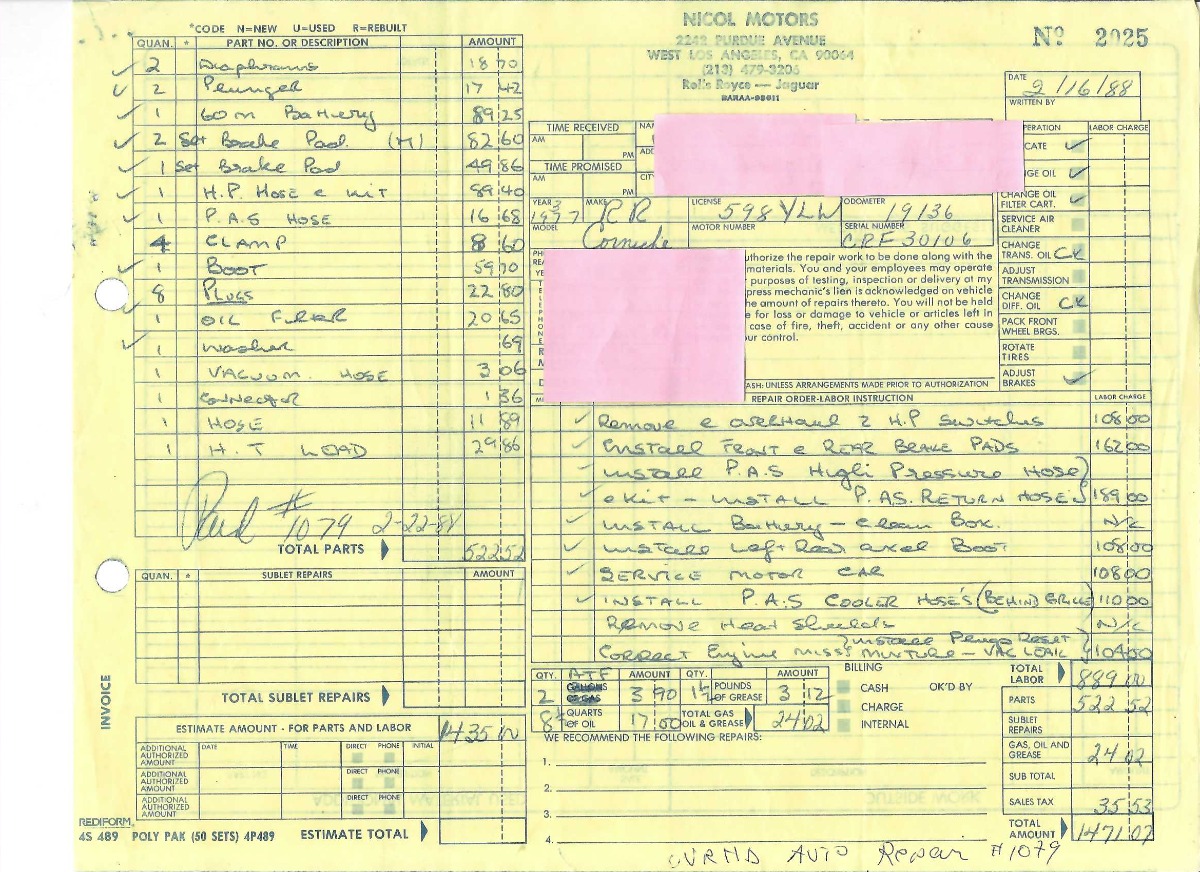 *CODE N=NEW U=USED R=REBUILT
QUAN. * PART NO. OR DESCRIPTION AMOUNT
2 Diaphrams 18 70
2 Plunger 17 42
1 60 m Battery 89 25
2 Set Brake Pad. (M) 82 60
1 Set Brake Pad 49 86
1 H.P. HOSE e KIT 89 40
1 P.A.S HOSE 16 68
4 CLAMP 8 60
1 BOOT 59 70
8 PLUGS 22 80
1 OIL FILTER 20 65
1 washer 69
1 VACUUM HOSE 3 06
1 connector 1 36
1 HOSE 11 89
1 H.T LEAD 29 86
Paid # 1079 2-22-88
TOTAL PARTS 522 52
QUAN. * SUBLET REPAIRS AMOUNT
TOTAL SUBLET REPAIRS
INVOICE
ESTIMATE AMOUNT - FOR PARTS AND LABOR 1435 00
ADDITIONAL AUTHORIZED AMOUNT DATE TIME DIRECT PHONE INITIAL
ADDITIONAL AUTHORIZED AMOUNT DIRECT PHONE
ADDITIONAL AUTHORIZED AMOUNT DIRECT PHONE
REDIFORM
4S 489 POLY PAK (50 SETS) 4P489 ESTIMATE TOTAL
NICOL MOTORS
2242 PURDUE AVENUE
WEST LOS ANGELES, CA 90064
(213) 479-3206
Rolls Royce — Jaguar
No 2025
DATE 2/16/88
WRITTEN BY
TIME RECEIVED
AM PM
TIME PROMISED
AM PM
YEAR 1977 MAKE RR LICENSE 598 YLW ODOMETER 19136
MODEL Corniche MOTOR NUMBER SERIAL NUMBER CRE 30106
uthorize the repair work to be done along with the
materials. You and your employees may operate
purposes of testing, inspection or delivery at my
press mechanic's lien is acknowledged on vehicle
he amount of repairs thereto. You will not be held
e for loss or damage to vehicle or articles left in
case of fire, theft, accident or any other cause
ur control.
ASH: UNLESS ARRANGEMENTS MADE PRIOR TO AUTHORIZATION
PERATION LABOR CHARGE
CATE
GE OIL
CHANGE OIL FILTER CART.
SERVICE AIR CLEANER
CHANGE TRANS. OIL CK
ADJUST TRANSMISSION
CHANGE DIFF. OIL CK
PACK FRONT WHEEL BRGS.
ROTATE TIRES
ADJUST BRAKES
REPAIR ORDER-LABOR INSTRUCTION LABOR CHARGE
Remove e overhaul 2 H.P Switches 108 00
Install FRONT e REAR BRAKE PADS 162 00
Install P.A.S High Pressure Hose
e Kit - INSTALL P.AS. RETURN HOSE'S 189 00
INSTALL Battery - Clean Box. N/C
Install Left Rear axel Boot 108 00
SERVICE MOTOR CAR 108 00
INSTALL P.A.S COOLER HOSE'S (BEHIND GRILLE) 110 00
REMOVE Heat Shields N/C
Install Plugs Reset
CORRECT Engine MISS MIXTURE - VAC LEAK 104 00
QTY. ATF AMOUNT QTY. AMOUNT
2 GALLONS OF GAS 3 90 POUNDS OF GREASE 3 12
QUARTS OF OIL 17 00 TOTAL GAS OIL & GREASE 24 02
BILLING
CASH OK'D BY
CHARGE
INTERNAL
WE RECOMMEND THE FOLLOWING REPAIRS:
1.
2.
3.
4.
TOTAL LABOR 889 00
PARTS 522 52
SUBLET REPAIRS
GAS, OIL AND GREASE 24 02
SUB TOTAL
SALES TAX 35 53
TOTAL AMOUNT 1471 07
AUTO Repair #1079